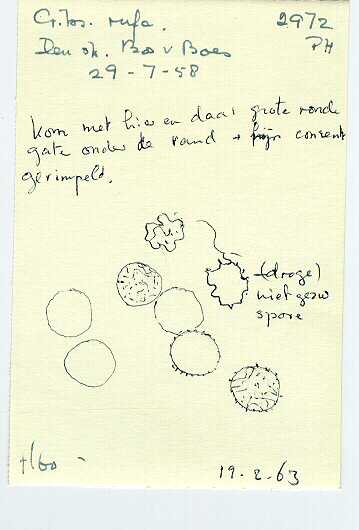 Cr. tos. rufa. 2972
Den ok. Bos v Boes PH
29-7-58
kom met hier en daar grote ronde
gate onder de rand + fijn concent
gerimpeld.
(droge)
niet gezw
spore
19.2.63